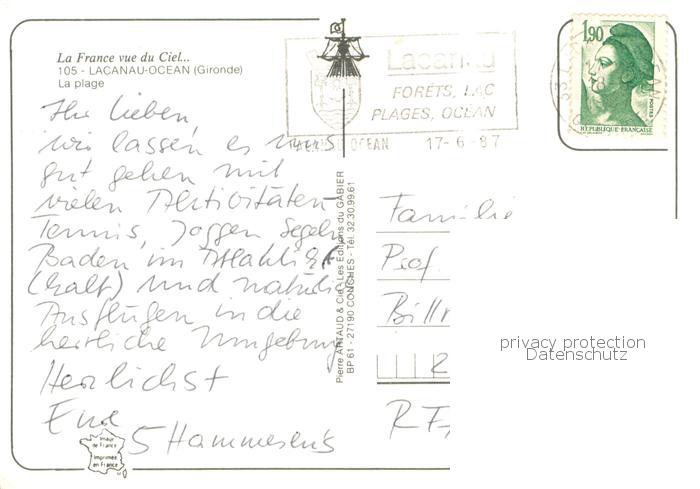 La France vue du Ciel...
105 - LACANAU-OCEAN (Gironde)
La plage
Ihr lieben,
wir lassen es uns
gut gehen mit
vielen Aktivitäten
Tennis, Joggen Segeln
Baden im Atlantik
(kalt) und natürlich
Ausflügen in die
herrliche Umgebung
Herzlichst
Eure
5 Hammesens
Image de France
Imprimée en France
Pierre ARTAUD & Cie - Les Editions du GABIER
BP 61 - 27190 CONCHES - Tél. 32.30.99.61
Lacanau
FORÊTS, LAC
PLAGES, OCÉAN
OCEAN 17-6-87
33
1,90
POSTES
REPUBLIQUE FRANÇAISE
Familie
Prof.
Billr
R
privacy protection
Datenschutz